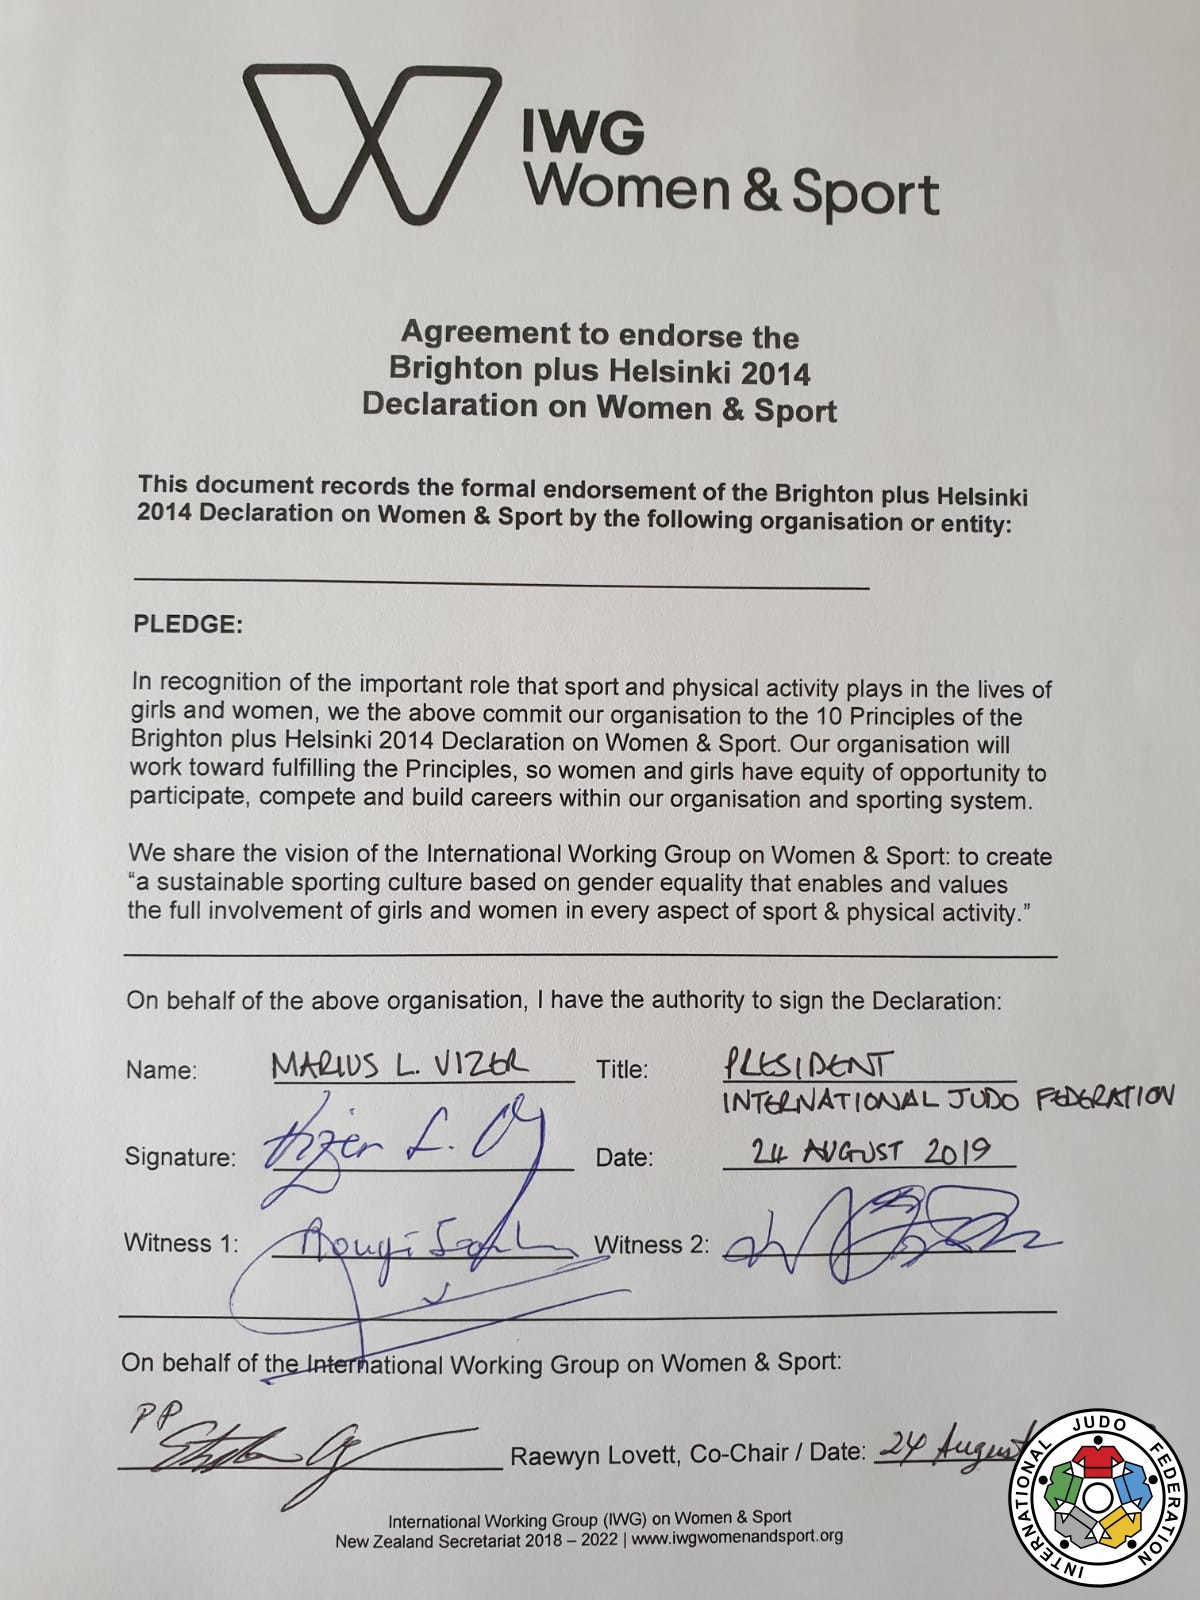 IWG
Women & Sport
Agreement to endorse the
Brighton plus Helsinki 2014
Declaration on Women & Sport
This document records the formal endorsement of the Brighton plus Helsinki
2014 Declaration on Women & Sport by the following organisation or entity:
PLEDGE:
In recognition of the important role that sport and physical activity plays in the lives of
girls and women, we the above commit our organisation to the 10 Principles of the
Brighton plus Helsinki 2014 Declaration on Women & Sport. Our organisation will
work toward fulfilling the Principles, so women and girls have equity of opportunity to
participate, compete and build careers within our organisation and sporting system.
We share the vision of the International Working Group on Women & Sport: to create
“a sustainable sporting culture based on gender equality that enables and values
the full involvement of girls and women in every aspect of sport & physical activity.”
On behalf of the above organisation, I have the authority to sign the Declaration:
Name: MARIUS L. VIZER Title: PRESIDENT
INTERNATIONAL JUDO FEDERATION
Signature: Vizer L. Date: 24 AUGUST 2019
Witness 1: Witness 2:
On behalf of the International Working Group on Women & Sport:
PP
Raewyn Lovett, Co-Chair / Date: 24 August
International Working Group (IWG) on Women & Sport
New Zealand Secretariat 2018 – 2022 | www.iwgwomenandsport.org
INTERNATIONAL JUDO FEDERATION